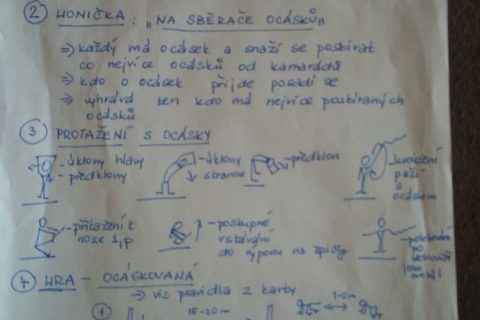 ② HONIČKA : „NA SBĚRAČE OCÁSKŮ"
⇒ každý má ocásek a snaží se posbírat
co nejvíce ocásků od kamarádů
⇒ kdo o ocásek přijde posadí se
⇒ vyhrává ten kdo má nejvíce posbíraných
ocásků
③ PROTAŽENÍ S OCÁSKY
- úklony hlavy
- předklony
- úklony
stranou
- předklon
- kroužení
paží
s
ocáskem
- přitažení k
noze L,P
- postupné
vstávání
do výponu na špičky
④ HRA - OCÁSKOVANÁ
→ viz pravidla z karty
① 15-20m
1-2m